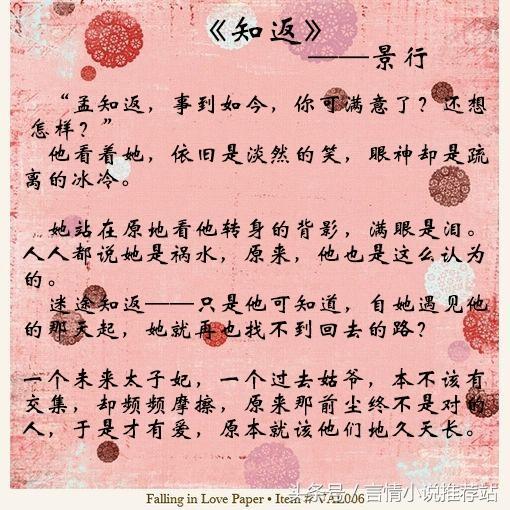 《知返》
——景行
“孟知返，事到如今，你可满意了？还想
怎样？”
他看着她，依旧是淡然的笑，眼神却是疏
离的冰冷。
她站在原地看他转身的背影，满眼是泪。
人人都说她是祸水，原来，他也是这么认为
的。
迷途知返——只是他可知道，自她遇见他
的那天起，她就再也找不到回去的路？
一个未来太子妃，一个过去姑爷，本不该有
交集，却频频摩擦，原来那前尘终不是对的
人，于是才有爱，原本就该他们地久天长。
Falling in Love Paper • Item #
头条号／言情小说推荐站